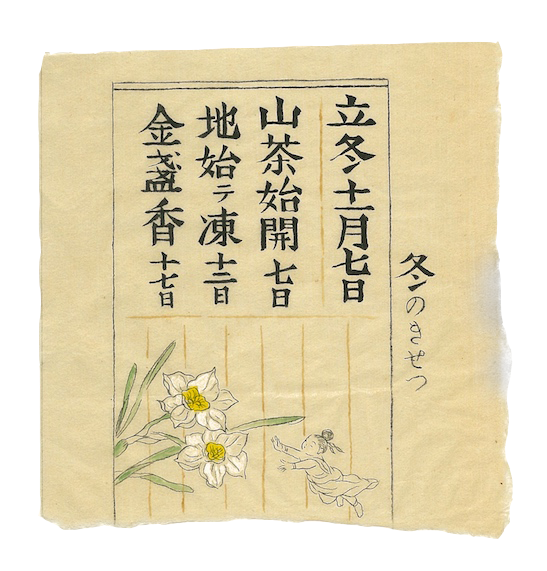 冬のきせつ
立冬十一月七日
山茶始開 七日
地始テ凍 十二日
金盞香 十七日